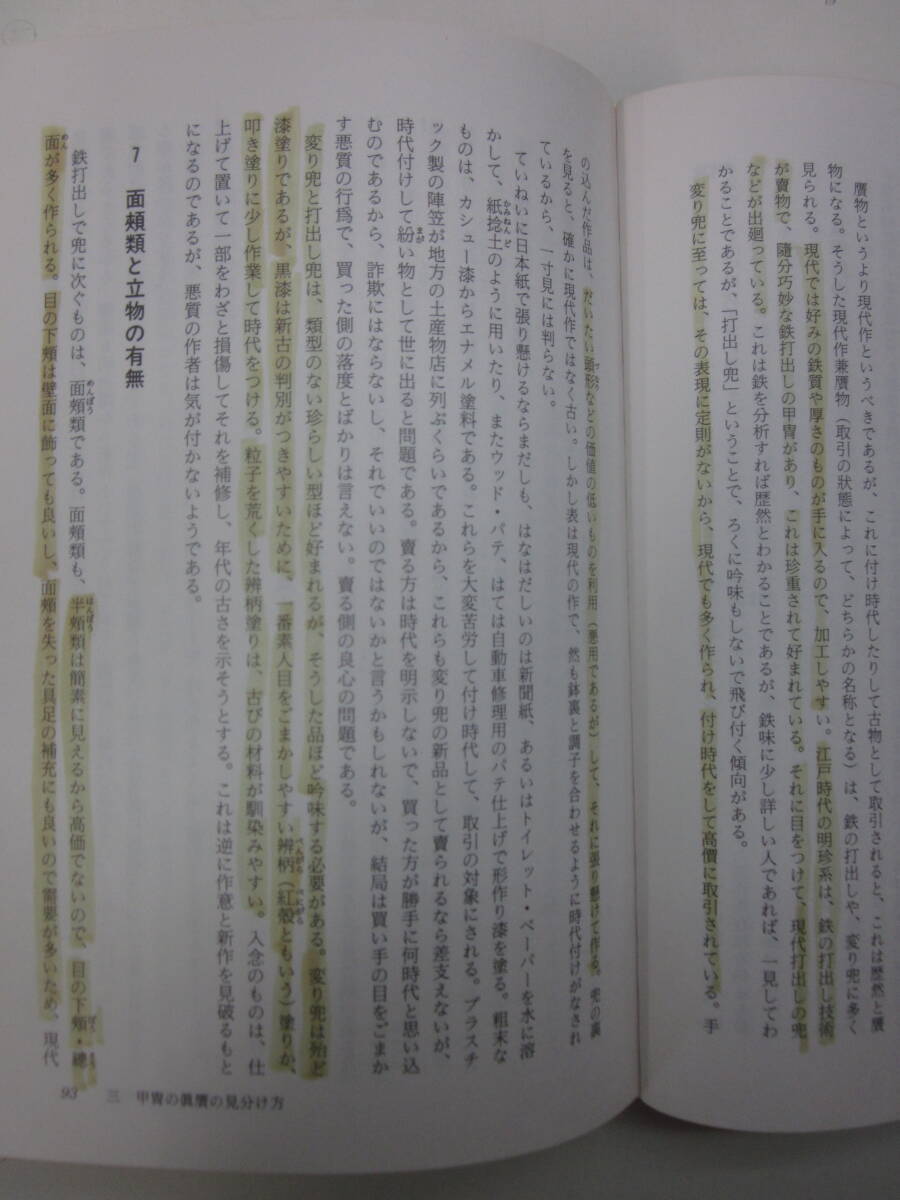 贋物というより現代作というべきであるが、これに付け時代したりして古物として取引されると、これは歴然と贋
物になる。そうした現代作兼贋物（取引の狀態によって、どちらかの名称となる）は、鉄の打出しや、変り兜に多く
見られる。現代では好みの鉄質や厚さのものが手に入るので、加工しやすい。江戸時代の明珍系は、鉄の打出し技術
が賣物で、隨分巧妙な鉄打出しの甲冑があり、これは珍重されて好まれている。それに目をつけて、現代打出しの兜
などが出廻っている。これは鉄を分析すれば歴然とわかることであるが、鉄味に少し詳しい人であれば、一見してわ
かることであるが、「打出し兜」ということで、ろくに吟味もしないで飛び付く傾向がある。
変り兜に至っては、その表現に定則がないから、現代でも多く作られ、付け時代をして高價に取引されている。手
の込んだ作品は、だいたい頭形などの価値の低いものを利用（悪用であるが）して、それに張り懸けて作る。兜の裏
を見ると、確かに現代作ではなく古い。しかし表は現代の作で、然も鉢裏と調子を合わせるように時代付けがなされ
ているから、一寸見には判らない。
ていねいに日本紙で張り懸けるならまだしも、はなはだしいのは新聞紙、あるいはトイレット・ペーパーを水に溶
かして、紙捻土のように用いたり、またウッド・パテ、はては自動車修理用のパテ仕上げで形作り漆を塗る。粗末な
ものは、カシュー漆からエナメル塗料である。これらを大変苦労して付け時代して、取引の対象にされる。プラスチ
ック製の陣笠が地方の土産物店に列ぶくらいであるから、これらも変り兜の新品として賣られるなら差支えないが、
時代付けして紛い物として世に出ると問題である。賣る方は時代を明示しないで、買った方が勝手に何時代と思い込
むのであるから、詐欺にはならないし、それでいいのではないかと言うかもしれないが、結局は買い手の目をごまか
す悪質の行爲で、買った側の落度とばかりは言えない。賣る側の良心の問題である。
変り兜と打出し兜は、類型のない珍らしい型ほど好まれるが、そうした品ほど吟味する必要がある。変り兜は殆ど
漆塗りであるが、黒漆は新古の判別がつきやすいために、一番素人目をごまかしやすい辨柄（紅殻ともいう）塗りか、
叩き塗りに少し作業して時代をつける。粒子を荒くした辨柄塗りは、古びの材料が馴染みやすい。入念のものは、仕
上げて置いて一部をわざと損傷してそれを補修し、年代の古さを示そうとする。これは逆に作意と新作を見破るもと
になるのであるが、悪質の作者は気が付かないようである。
7 面頬類と立物の有無
鉄打出しで兜に次ぐものは、面頬類である。面頬類も、半頬類は簡素に見えるから高価でないので、目の下頬・總
面が多く作られる。目の下頬は壁面に飾っても良いし、面頬を失った具足の補充にも良いので需要が多いため、現代
93 三 甲冑の眞贋の見分け方